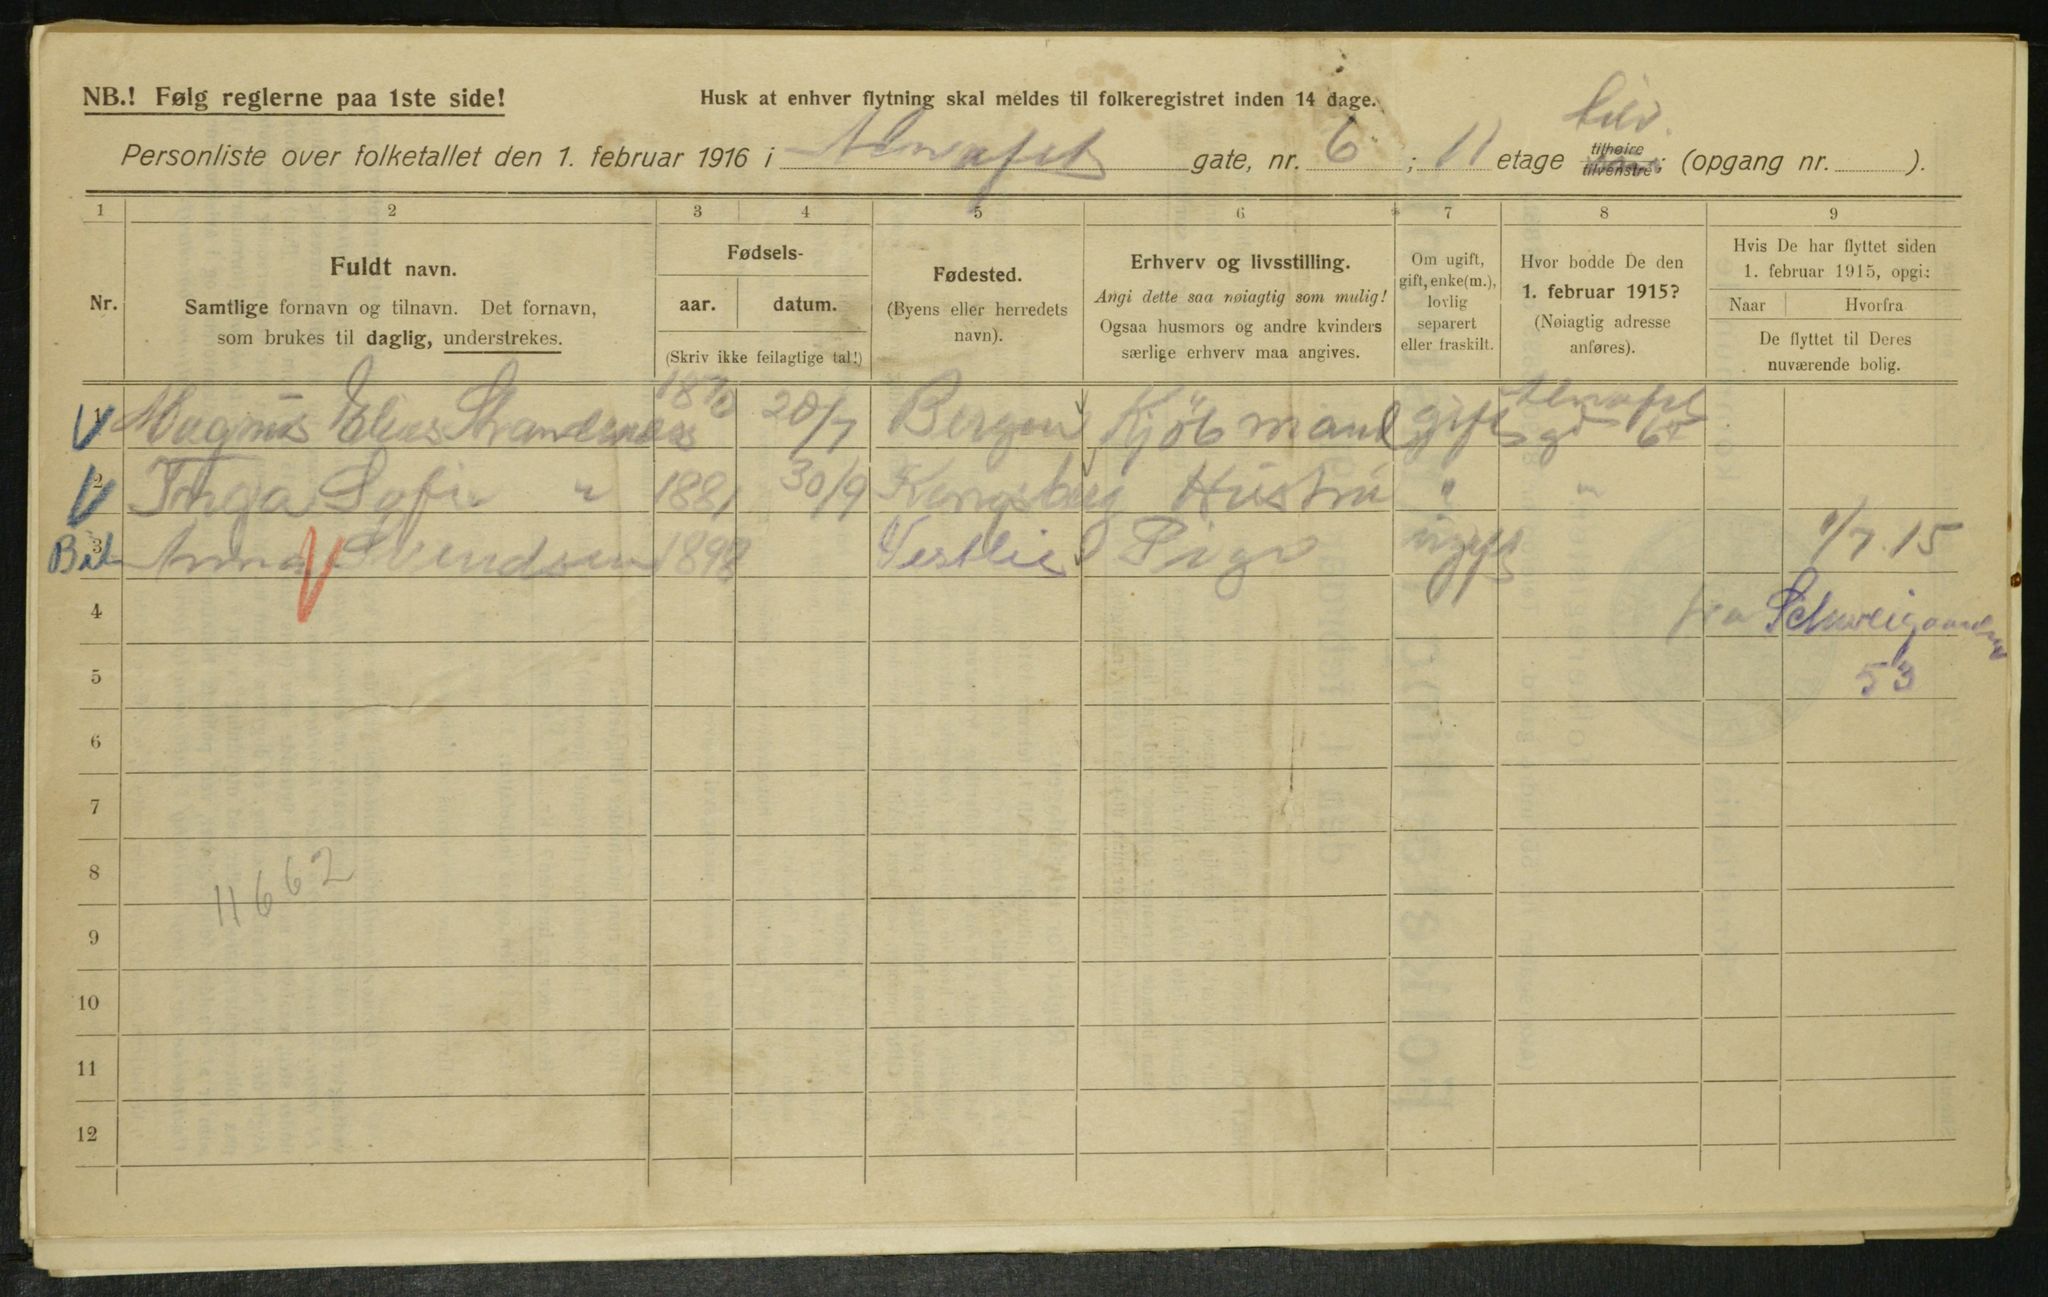 NB.! Følg reglerne paa 1ste side!
Husk at enhver flytning skal meldes til folkeregistret inden 14 dage.
Personliste over folketallet den 1. februar 1916 i gate, nr. 6 ; 11 etage tilhøire tilvenstre; (opgang nr. ).
1 2 3 4 5 6 7 8 9
Nr.
Fuldt navn.
Samtlige fornavn og tilnavn. Det fornavn,
som brukes til daglig, understrekes.
Fødsels-
aar. datum.
(Skriv ikke feilagtige tal!)
Fødested.
(Byens eller herredets
navn).
Erhverv og livsstilling.
Angi dette saa nøiagtig som mulig!
Ogsaa husmors og andre kvinders
særlige erhverv maa angives.
Om ugift,
gift, enke(m.),
lovlig
separert
eller fraskilt.
Hvor bodde De den
1. februar 1915?
(Nøiagtig adresse
anføres).
Hvis De har flyttet siden
1. februar 1915, opgi:
Naar Hvorfra
De flyttet til Deres
nuværende bolig.
1 Magnus Elias 20/7 Bergen Kjöbmand gift 6
2 Inga Sofie " 1881 30/9 Kongsberg Hustru " "
3 Anna Svendsen 1898 Vestlie Pige ugift 1/7.15
4 fra Schweigaardsg
5 53
6
7
8
11662
9
10
11
12